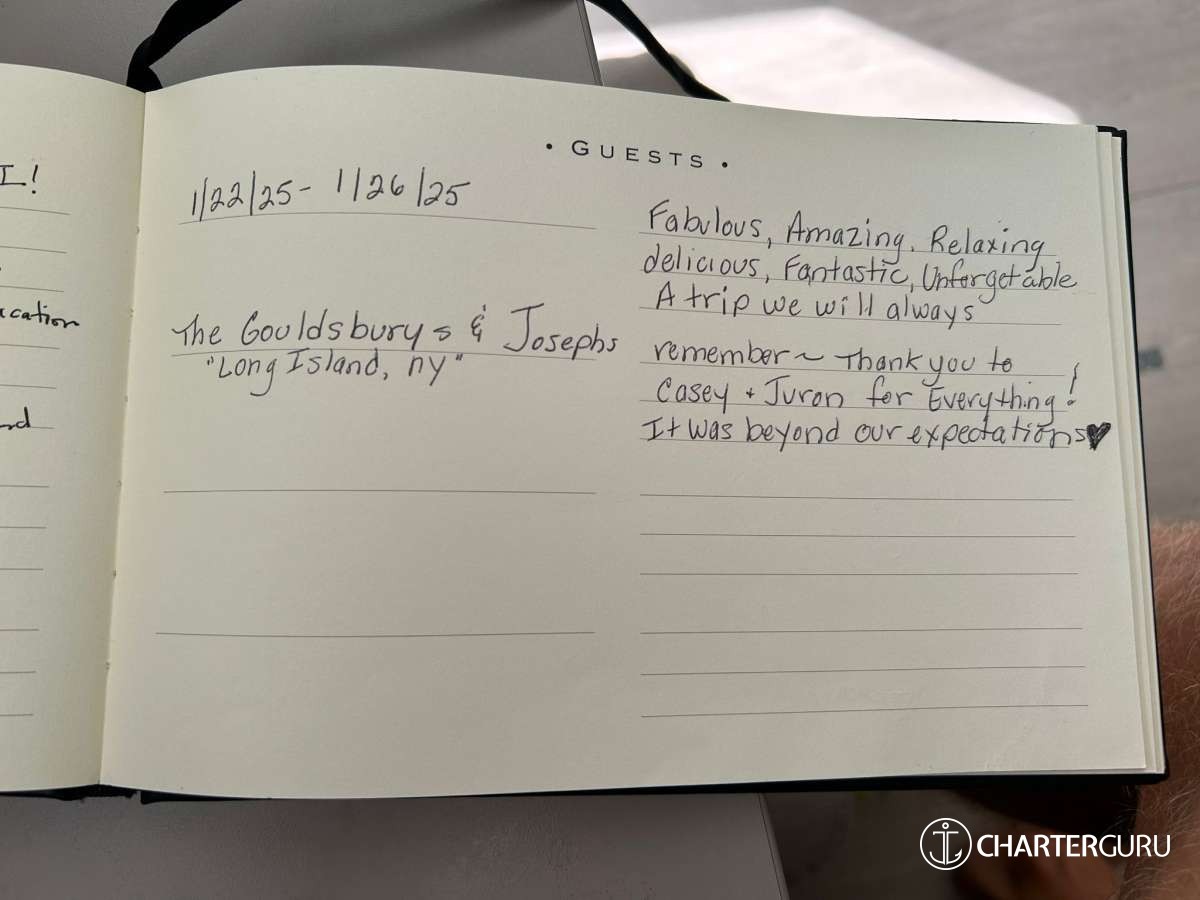 I!
acation
nd
• GUESTS •
1/22/25 - 1/26/25
The Gouldsburys & Josephs
"Long Island, ny"
Fabulous, Amazing, Relaxing
delicious, Fantastic, Unforgetable
A trip we will always
remember ~ Thank you to
Casey + Juron for Everything!
It was beyond our expectations♥
CHARTERGURU